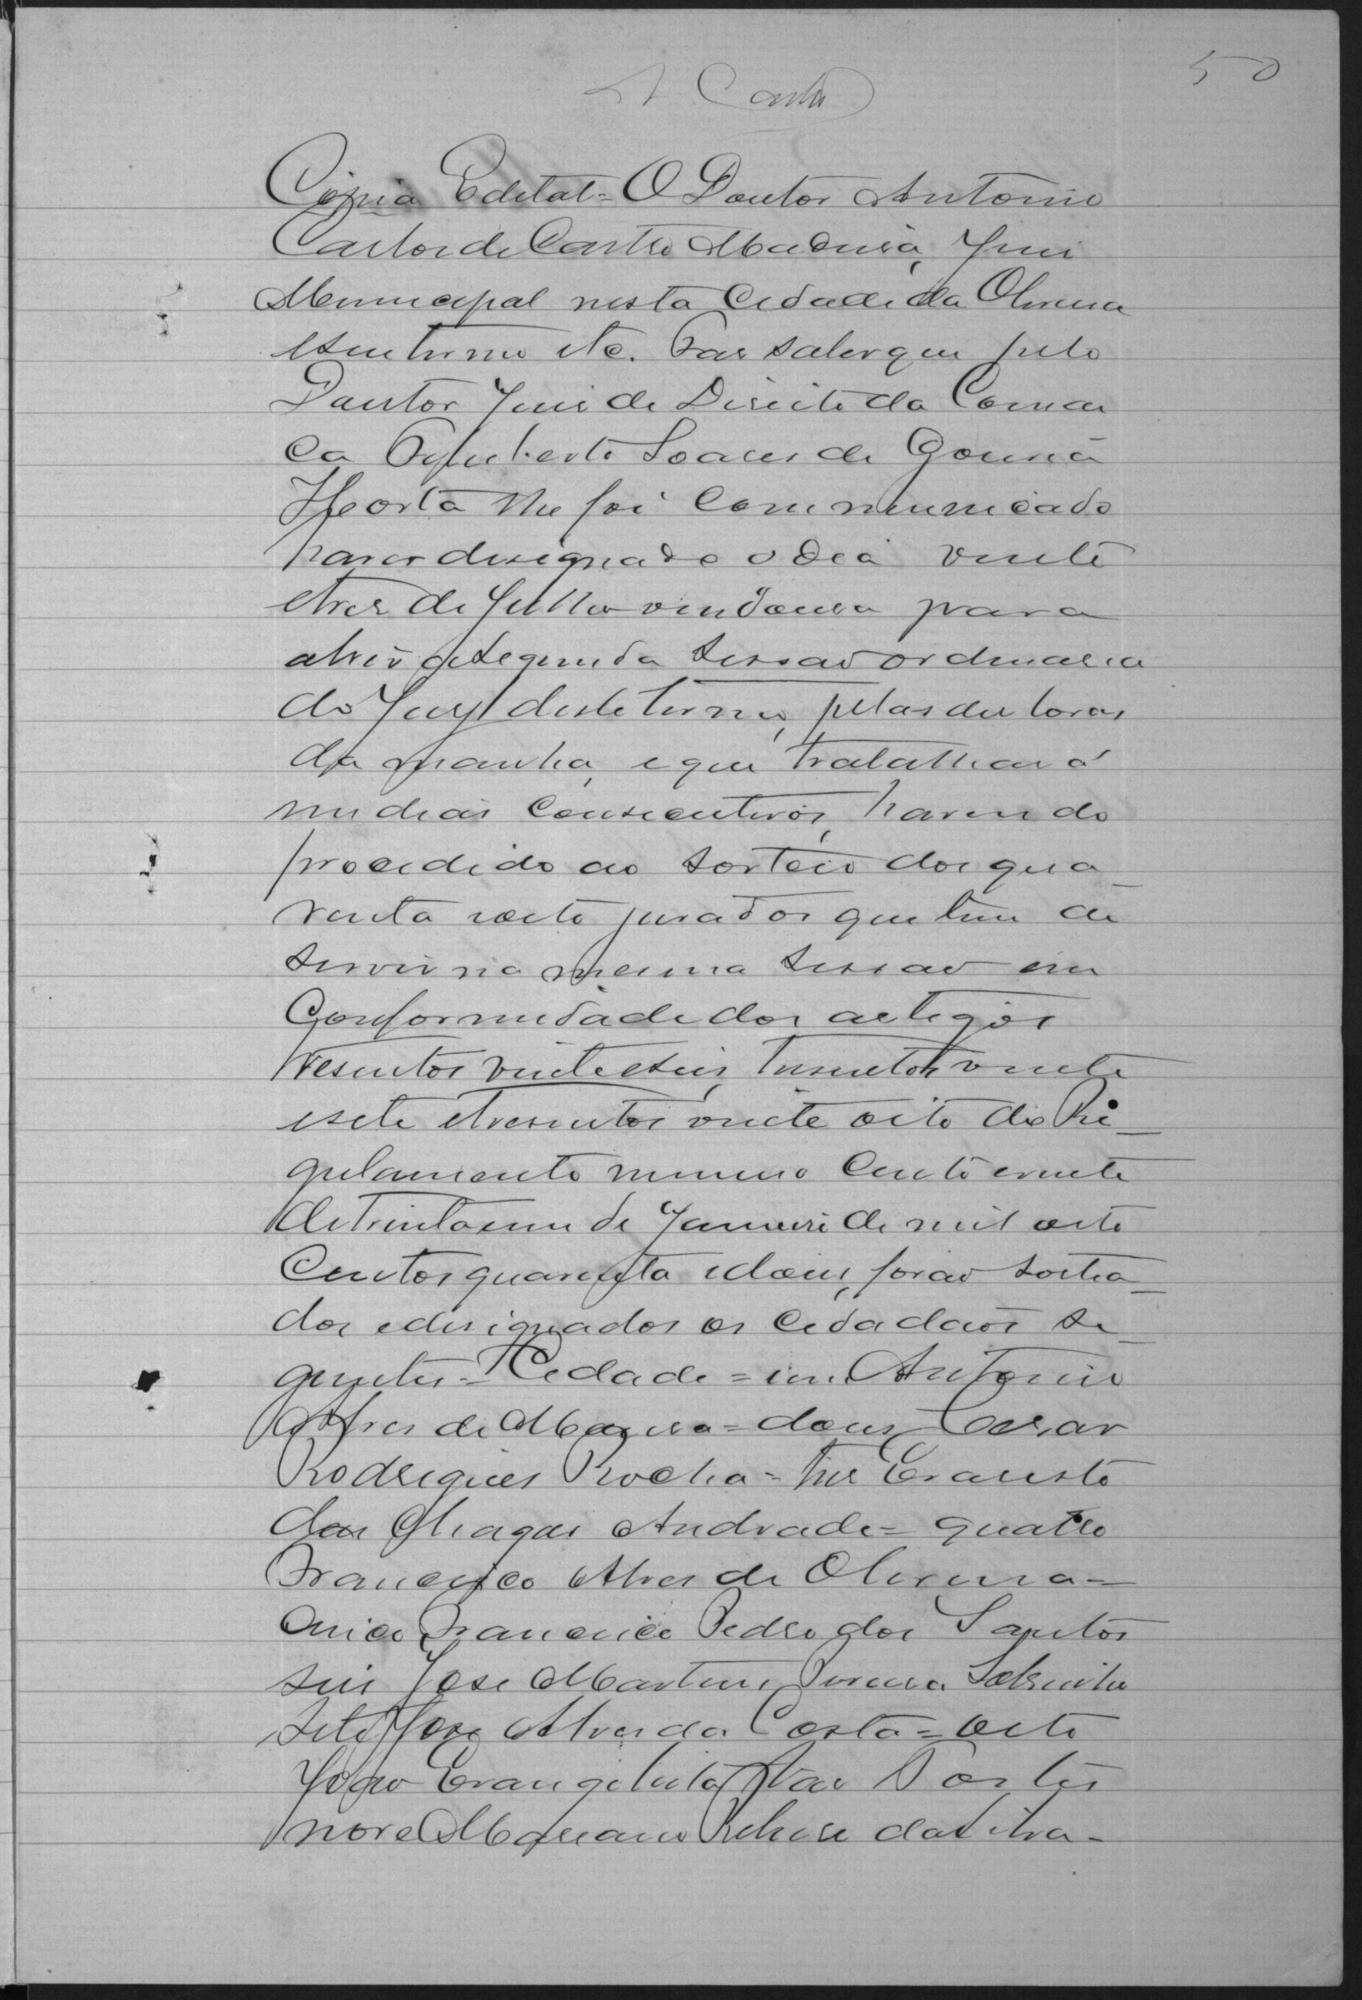 50
A Castro
Cópia Edital = O Doutor Antonio
Carlos de Castro Madeira, Juis
Municipal nesta Cidade da Oliveira
e seu termo etc. Fas saber que pelo
Doutor Juis de Direito da Comar
ca Soares de Gouvêa
Horta me foi communicado
haver designado o dia vinte
e tres de Julho vindouro para
abrir a segunda sessão ordinaria
do Jury deste termo, pelas dez horas
da manha, e que trabalhará
em dias consecutivos, havendo
procedido ao sorteio dos qua_
renta e oito jurados que tem de
servir na mesma sessão em
Conformidade dos artigos
tresentos vinte e seis, tresentos vinte
e sete e tresentos vinte oito do Re_
gulamento numero Cento e vinte
de trinta e um de Janeiro de mil oito
Centos quarenta e dous, forão sortea_
dos e designados os Cidadãos se_
guintes = Cidade = um Antonio
Alves de Moura = dous Cesar
Rodrigues Rocha = tres Evaristo
das Chagas Andrade = quatro
Francisco Alves de Oliveira =
cinco Francisco Pedro dos Santos
seis Jose Martins Pereira Sobrinho
Sete Jose Alves da Costa = oito
João Evangelista São Thiago
nove Mariano Ribeiro da Silva -